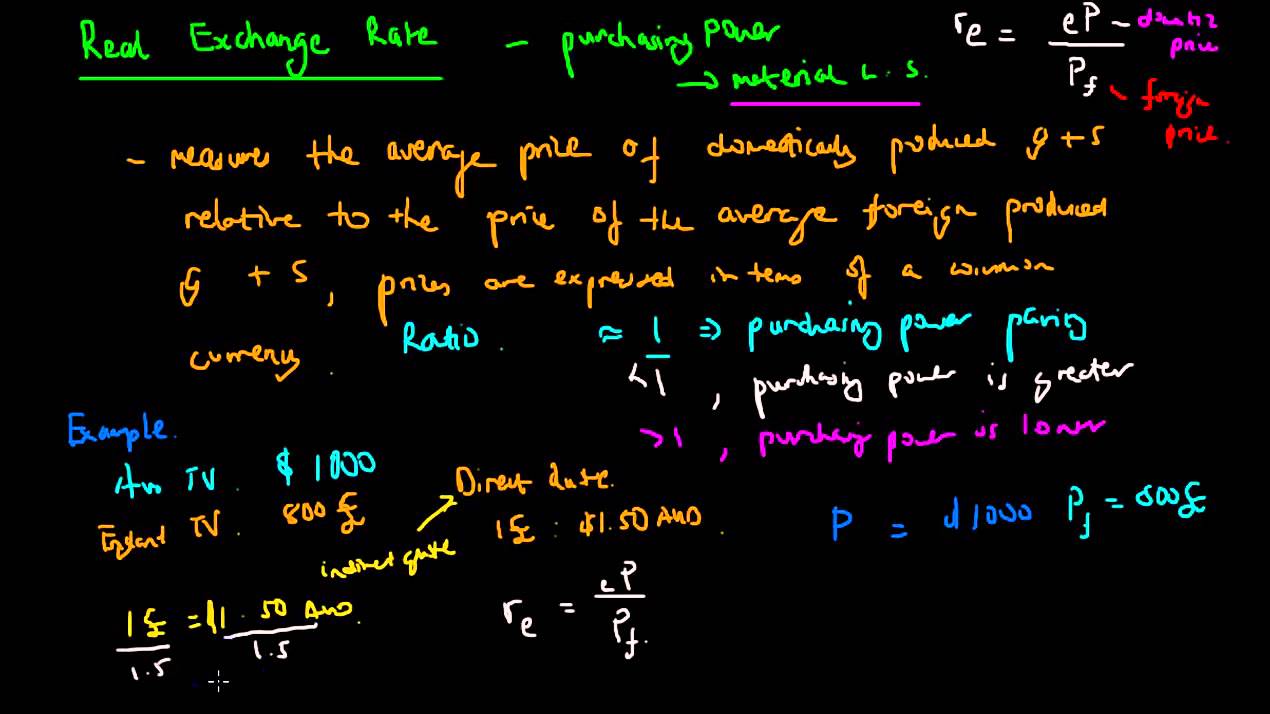 Real Exchange Rate - purchasing power
→ material L.S.
re = eP / Pf
domestic price
foreign price.
- measures the average price of domestically produced g + s
relative to the price of the average foreign produced
G + S, prices are expressed in terms of a common
currency.
Ratio. ≈ 1/1 ⇒ purchasing power parity
< 1, purchasing power is greater
> 1, purchasing power is lower
Example.
Aus TV. $1000
TV. 800 £
Direct Quote.
1£ : $1.50 AUD.
indirect quote
P = $1000 Pf = 800£
1£ / 1.5 = $1.50 AUD. / 1.5
re = eP / Pf.